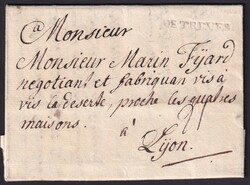 a Monsieur
DE TREVES
Monsieur Marin Fijard
negotiant et fabriquan vis à
vis la deserte, proche les quatres
maisons.
à
Lyon.